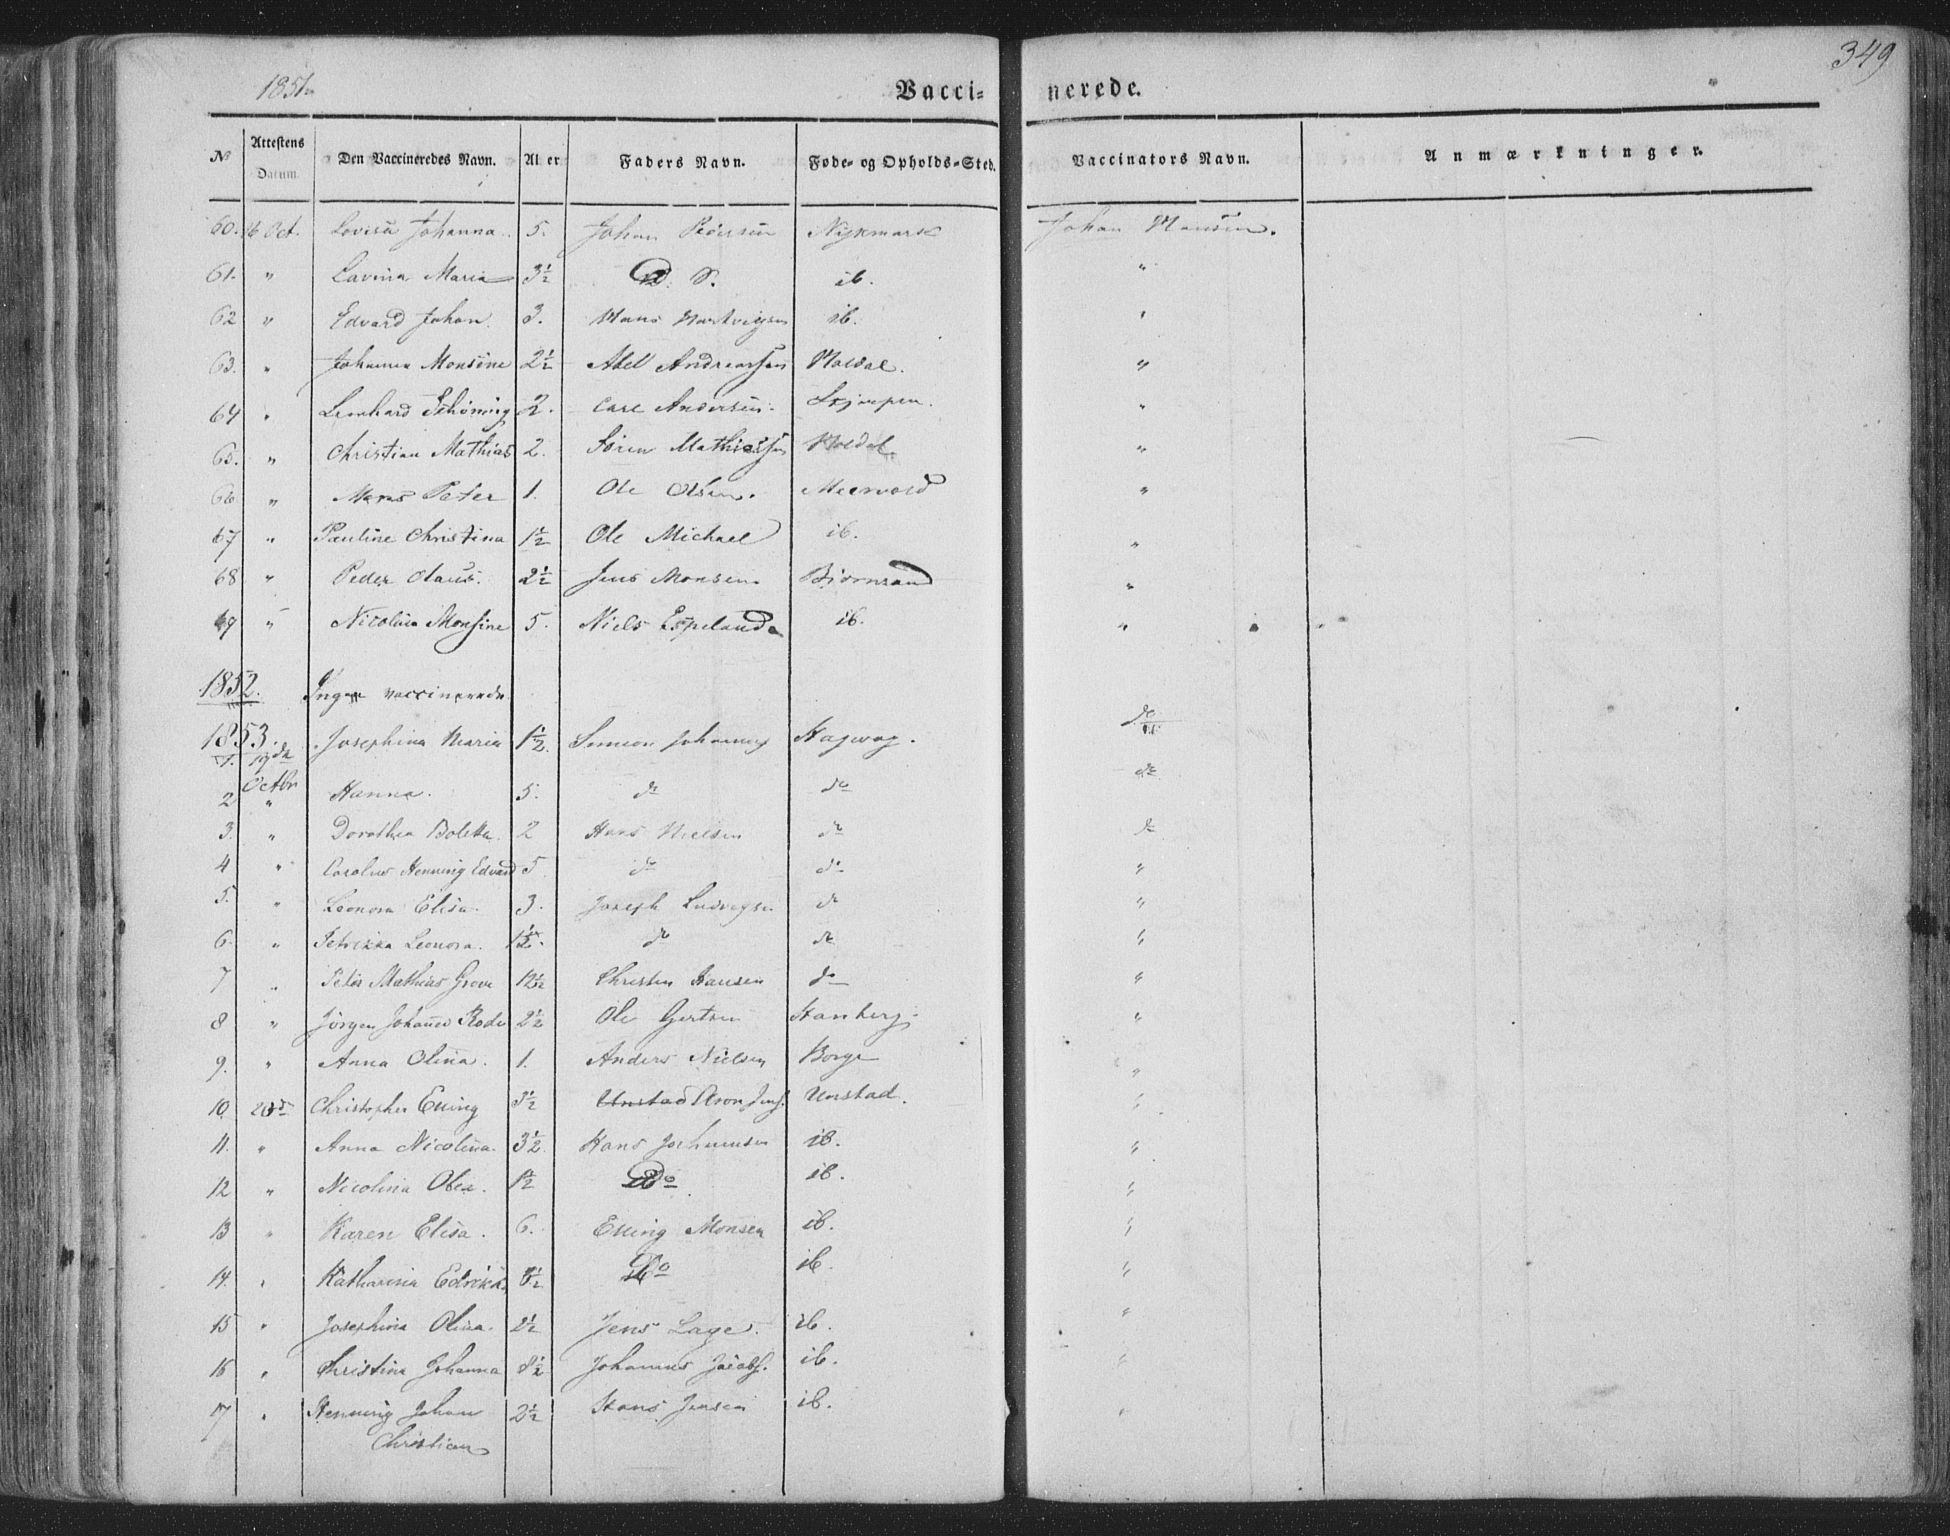 349
1851
Vacci- nerede.
№ Attestens Datum. Den Vaccineredes Navn. Alder Faders Navn. Føde- og Opholds-Sted. Vaccinators Navn. Anmærkninger.
60. 16 Oct. Lovisa Johanna. 5. Johan Pedersen Johan Hansen.
61. " Lavina Maria 3½ D. S. ib. "
62 " Edvard Johan. 3. Hans Hartvigsen ib. "
63. " Johanna Monsine 2½ Abel Andreassen Holdal. "
64 " Leonhard Schöning 2. Carl Andersen. "
65. " Christian Mathias 2. Sören Mathiassen Holdal "
66 " Peter 1. Ole Olsen. Meervold "
67 " Pauline Christina 1½ Ole Michael ib. "
68 " Peder Olaus. 2½ Jens Monsen. Biörnsand "
69 " Nicolina Monsine 5. Niels Espeland. ib. "
1852. Ingen vaccinerede.
1853.
1. 19de Octbr Josephina Maria 1½. Simeon Johannes Hagwog. do
2 " Hanna. 5. do do do
3. " Dorothea Boletta. 2 Hans Nielsen do do
4 " Carolus Henning Edvard 5 do do "
5. " Leonora Elisa. 3. Joseph Ludvigsen do "
6. " Petrikka Leonora. 1½. do do "
7 " Peter Mathias Grove 12½ Christen Hansen do "
8 " Jörgen Johannes Rode 2½ Ole Gertsen Hanberg. "
9. " Anna Olina. 1. Anders Nielsen Borge "
10. 20de Christopher Elling 3½ Unstad Aron Jens. Unstad. "
11. " Anna Nicolina. 3½. Hans Jochumsen ib. "
12 " Nicolina Olea. 1½ Do ib. "
13 " Karen Elisa. 6. Elling Monsen ib. "
14. " Katharina Edrikka 8½ Do ib. "
15 " Josephina Olina. 2½ Jens Lage. ib. "
16 " Christina Johanna 8½ Johannes Jacobs. ib. "
17 " Henning Johan 2½ Hans Jensen ib. "
Christian